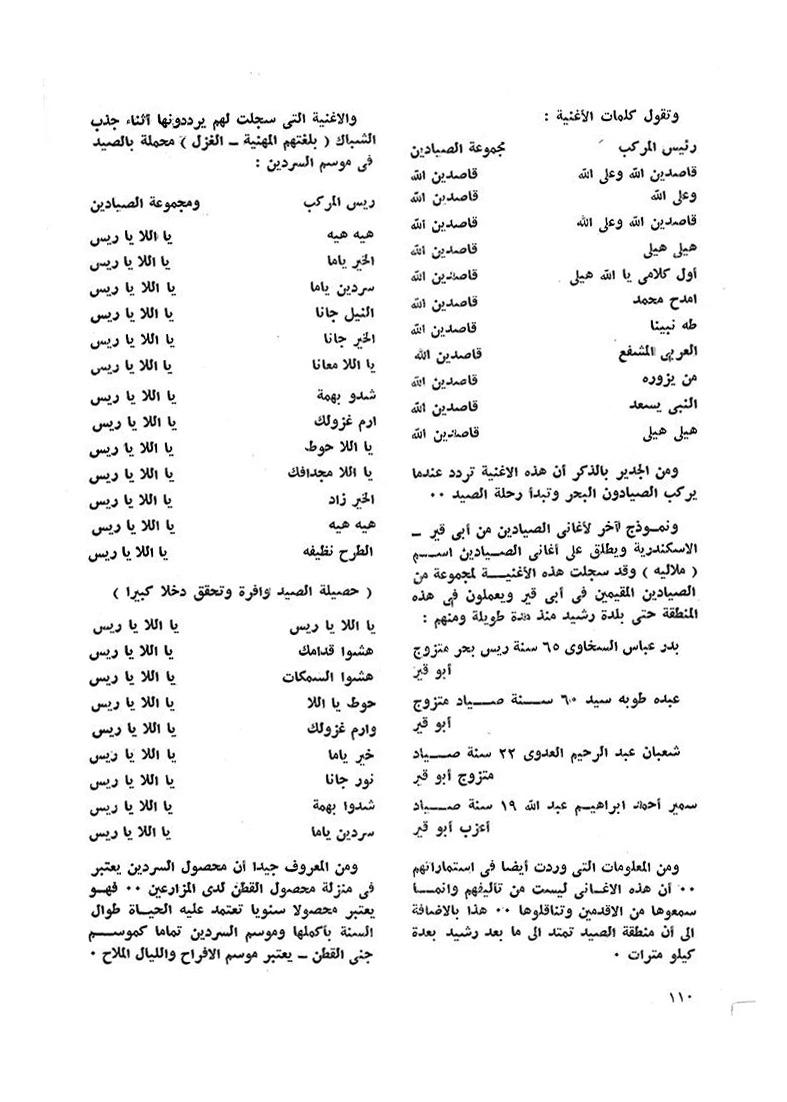 وتقول كلمات الأغنية :
رئيس المركب مجموعة الصيادين
قاصدين الله وعلى الله قاصدين الله
وعلى الله قاصدين الله
قاصدين الله وعلى الله قاصدين الله
هيلى هيلى قاصدين الله
أول كلامى يا الله هيلى قاصدين الله
امدح محمد قاصدين الله
طه نبينا قاصدين الله
العربى المشفع قاصدين الله
من يزوره قاصدين الله
النبى يسعد قاصدين الله
هيلى هيلى قاصدين الله
ومن الجدير بالذكر أن هذه الاغنية تردد عندما
يركب الصيادون البحر وتبدأ رحلة الصيد ٠٠
ونمـوذج آخر لأغانى الصيادين من أبى قير ــ
الاسكندرية ويطلق على أغانى الصـيادين اسـم
( ملاليه ) وقد سجلت هذه الأغنيـــة لمجموعة من
الصيادين المقيمين فى أبى قير ويعملون فى هذه
المنطقة حتى بلدة رشيد منذ مدة طويلة ومنهم :
بدر عباس السخاوى ٦٥ سنة ريس بحر متزوج
أبو قير
عبده طوبه سيد ٦٠ ســـنة صـــياد متزوج
أبو قير
شعبان عبد الرحيم العدوى ٢٢ سنة صـــياد
متزوج أبو قير
سمير أحمد ابراهيم عبد الله ١٩ سنة صـــياد
أعزب أبو قير
ومن المعلومات التى وردت أيضا فى استماراتهم
٠٠ أن هذه الاغـانى ليست من تأليفهم وانمــا
سمعوها من الاقدمين وتناقلوها ٠٠ هذا بالاضافة
الى أن منطقة الصيد تمتد الى ما بعد رشيد بعدة
كيلو مترات ٠
والاغنية التى سجلت لهم يرددونها أثناء جذب
الشباك ( بلغتهم المهنية ــ الغزل ) محملة بالصيد
فى موسم السردين :
ريس المركب ومجموعة الصيادين
هيه هيه يا اللا يا ريس
الخير ياما يا اللا يا ريس
سردين ياما يا اللا يا ريس
النيل جانا يا اللا يا ريس
الخير جانا يا اللا يا ريس
يا اللا معانا يا اللا يا ريس
شدو بهمة يا اللا يا ريس
ارم غزولك يا اللا يا ريس
يا اللا حوط يا اللا يا ريس
يا اللا مجدافك يا اللا يا ريس
الخير زاد يا اللا يا ريس
هيه هيه يا اللا يا ريس
الطرح نظيفه يا اللا يا ريس
( حصيلة الصيد وافرة وتحقق دخلا كبيرا )
يا اللا يا ريس يا اللا يا ريس
هشوا قدامك يا اللا يا ريس
هشوا السمكات يا اللا يا ريس
حوط يا اللا يا اللا يا ريس
وارم غزولك يا اللا يا ريس
خير ياما يا اللا يا ريس
نور جانا يا اللا يا ريس
شدوا بهمة يا اللا يا ريس
سردين ياما يا اللا يا ريس
ومن المعروف جيدا أن محصول السردين يعتبر
فى منزلة محصول القطن لدى المزارعين ٠٠ فهـو
يعتبر محصولا سنويا تعتمد عليه الحيـاة طوال
السنة بأكملها وموسم السردين تماما كموســم
جنى القطن ــ يعتبر موسم الافراح والليال الملاح ٠
١١٠